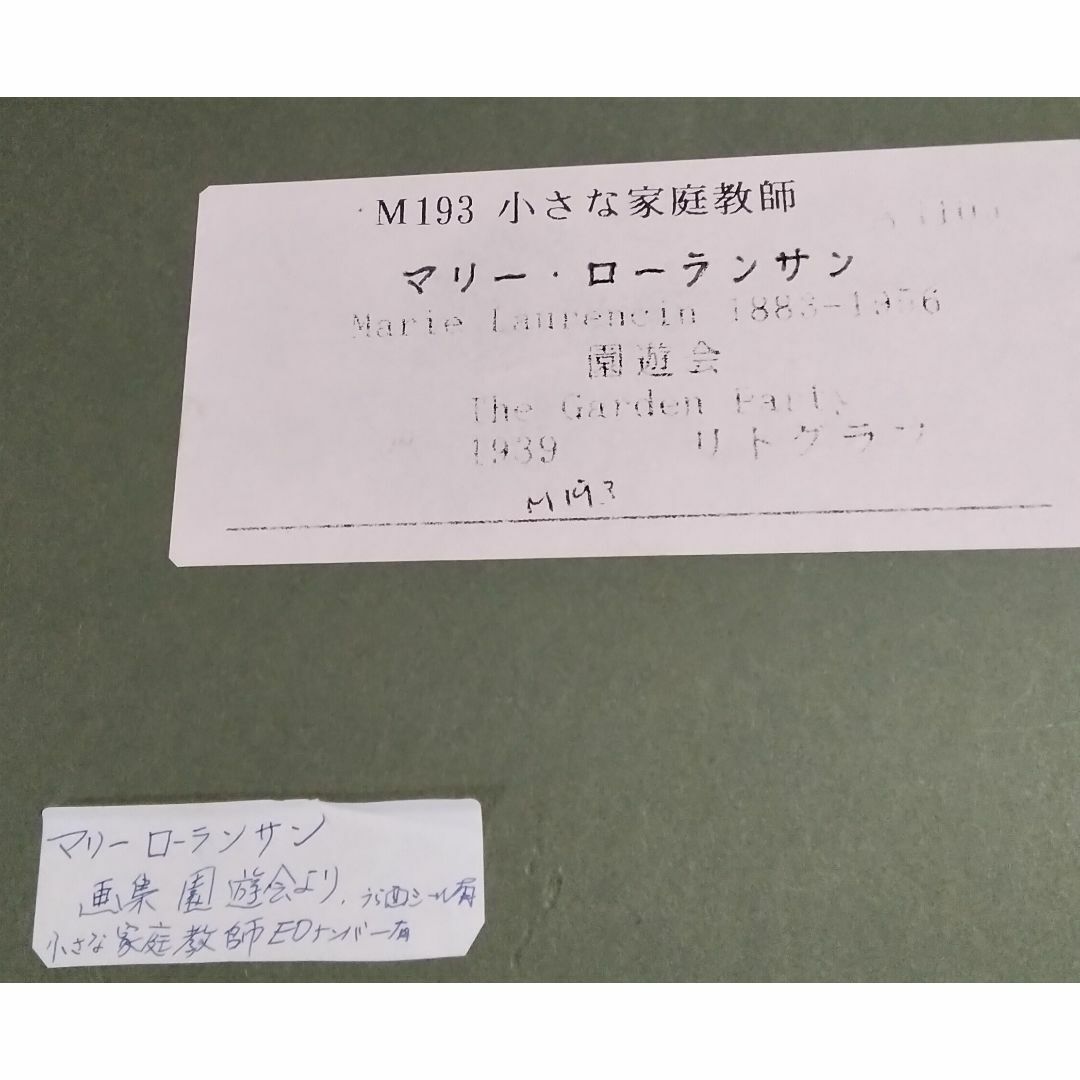 M193 小さな家庭教師
マリー・ローランサン
Marie Laurencin 1883-1956
園遊会
The Garden Party
1939 リトグラフ
M193
マリーローランサン
画集 園遊会より、うら面シール有
小さな家庭教師EDナンバー有